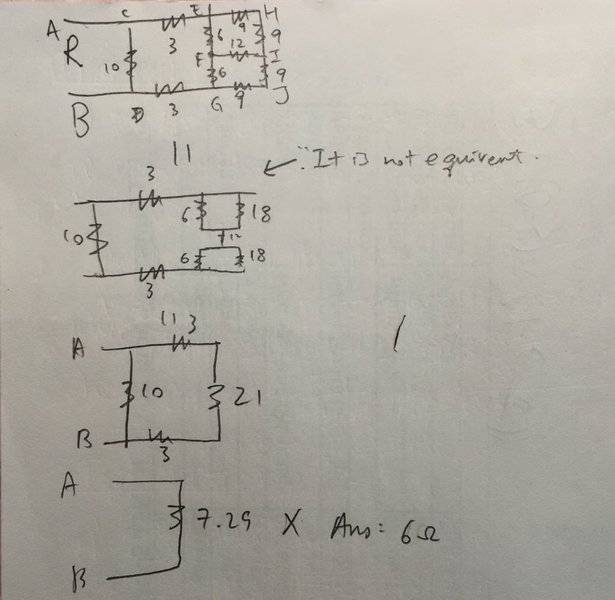 A C E H
R 3 6 9 9
10 F 12 I
6 9
B D 3 G 9 J
11
3 ∵ It is not equivent.
6 18
10 12
6 18
3
11 3
A
10 21
B 3
A
7.29 X Ans: 6Ω
B